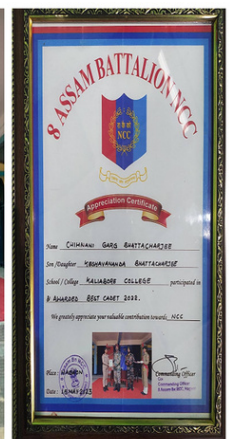 8 ASSAM BATTALION NCC
NCC
Appreciation Certificate
Name CHINMANI GARG BHATTACHARJEE
Son/Daughter KESHAVANANDA BHATTACHARJEE
School / College KALIABOR COLLEGE participated in
& AWARDED BEST CADET 2022.
We greatly appreciate your valuable contribution towards NCC
Place: NAGAON
Date: 15 MAY 2023
Commanding Officer